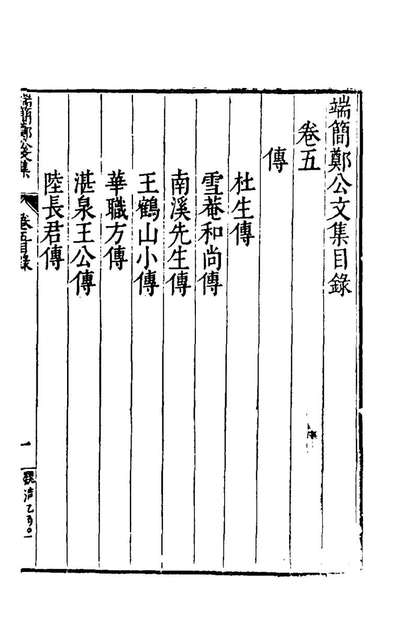 端簡鄭公文集目錄
卷五
傳
杜生傳
雪菴和尚傳
南溪先生傳
王鶴山小傳
華職方傳
湛泉王公傳
陸長君傳
端簡鄭公文集
卷五目錄
一